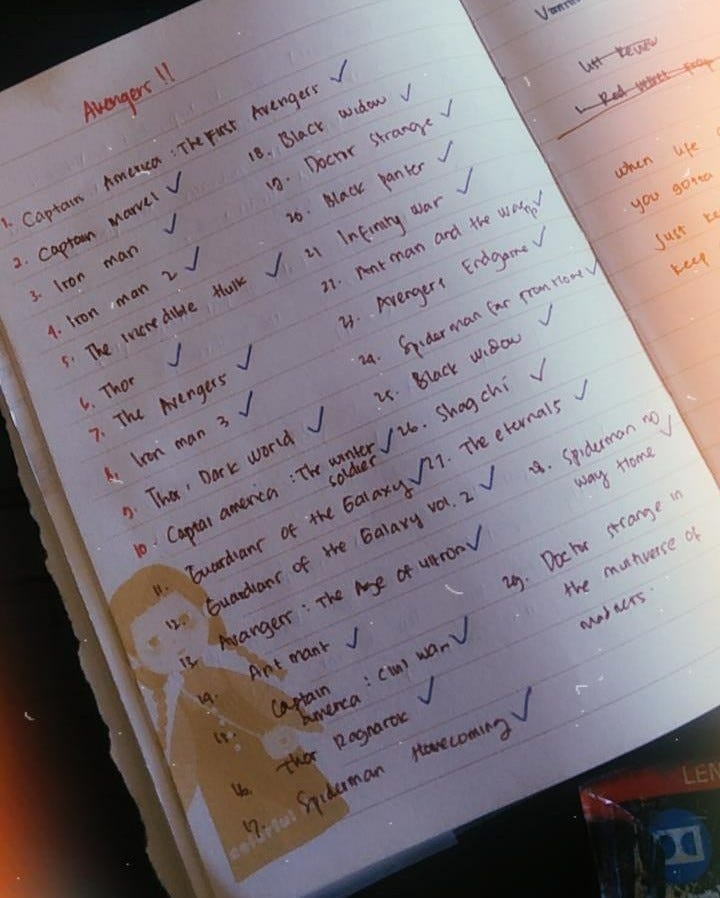 Avengers !!
1. Captain America : The First Avengers ✓
2. Captain Marvel ✓
3. Iron man ✓
4. Iron man 2 ✓
5. The Incredible Hulk ✓
6. Thor ✓
7. The Avengers ✓
8. Iron man 3 ✓
9. Thor, Dark World ✓
10. Captai america : The winter
soldier ✓
11. Guardians of the Galaxy ✓
12. Guardians of the Galaxy vol. 2 ✓
13. Avangers : The Age of ultron ✓
14. Ant mant ✓
15. Captain
america : civil war ✓
16. Thor Ragnarok ✓
17. Spiderman Homecoming ✓
18. Black widow ✓
19. Doctor strange ✓
20. Black panter ✓
21 Infinity war ✓
22. Ant man and the wasp ✓
23. Avengers Endgame ✓
24. Spiderman far from Home ✓
25. Black widow ✓
26. Shag chi ✓
27. The eternals ✓
28. Spiderman no
way Home ✓
29. Doctor strange in
the multiverse of
madness.
colorful
Red
when life
you gotta
Just
keep
LEN